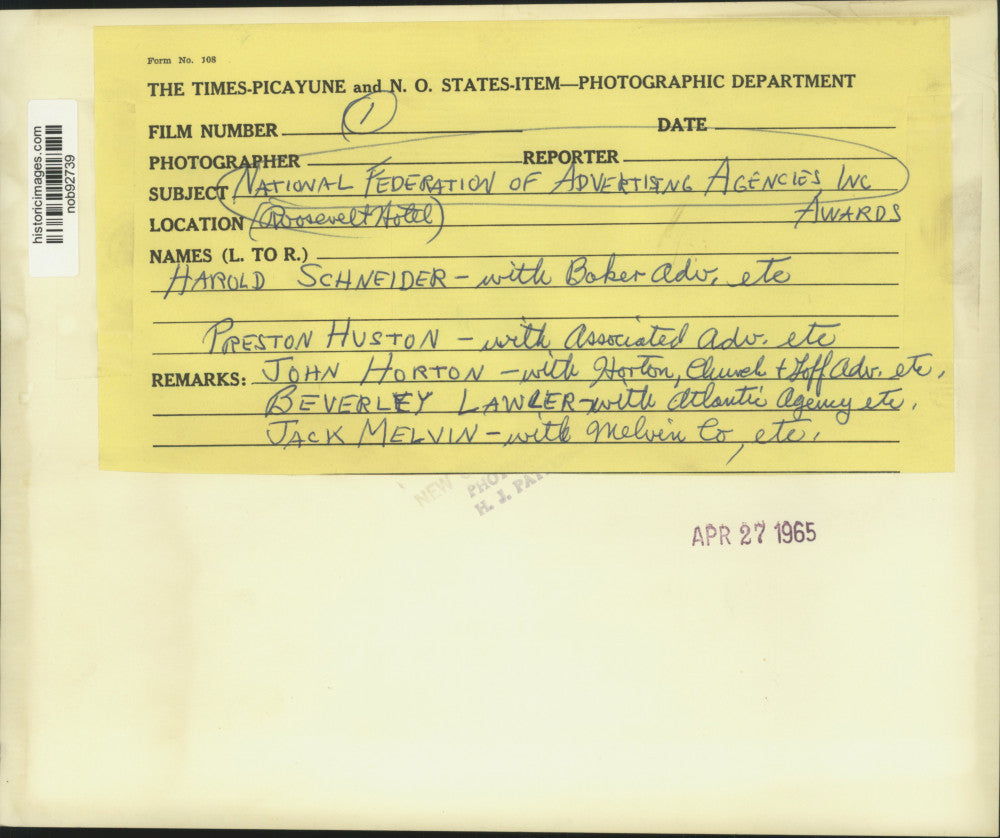 Form No. 108
THE TIMES-PICAYUNE and N. O. STATES-ITEM—PHOTOGRAPHIC DEPARTMENT
FILM NUMBER 1 DATE
PHOTOGRAPHER REPORTER
SUBJECT NATIONAL FEDERATION OF ADVERTISING AGENCIES, INC
LOCATION (Roosevelt Hotel) AWARDS
NAMES (L. TO R.)
HAROLD SCHNEIDER - with Baker Adv. etc
PRESTON HUSTON - with Associated Adv. etc
REMARKS: JOHN HORTON - with Horton, Church & Goff Adv. etc.
BEVERLEY LAWLER - with Atlantic Agency etc.
JACK MELVIN - with Melvin Co, etc.
NEW
PHO
H. J. PA
APR 27 1965
historicimages.com
nob92739